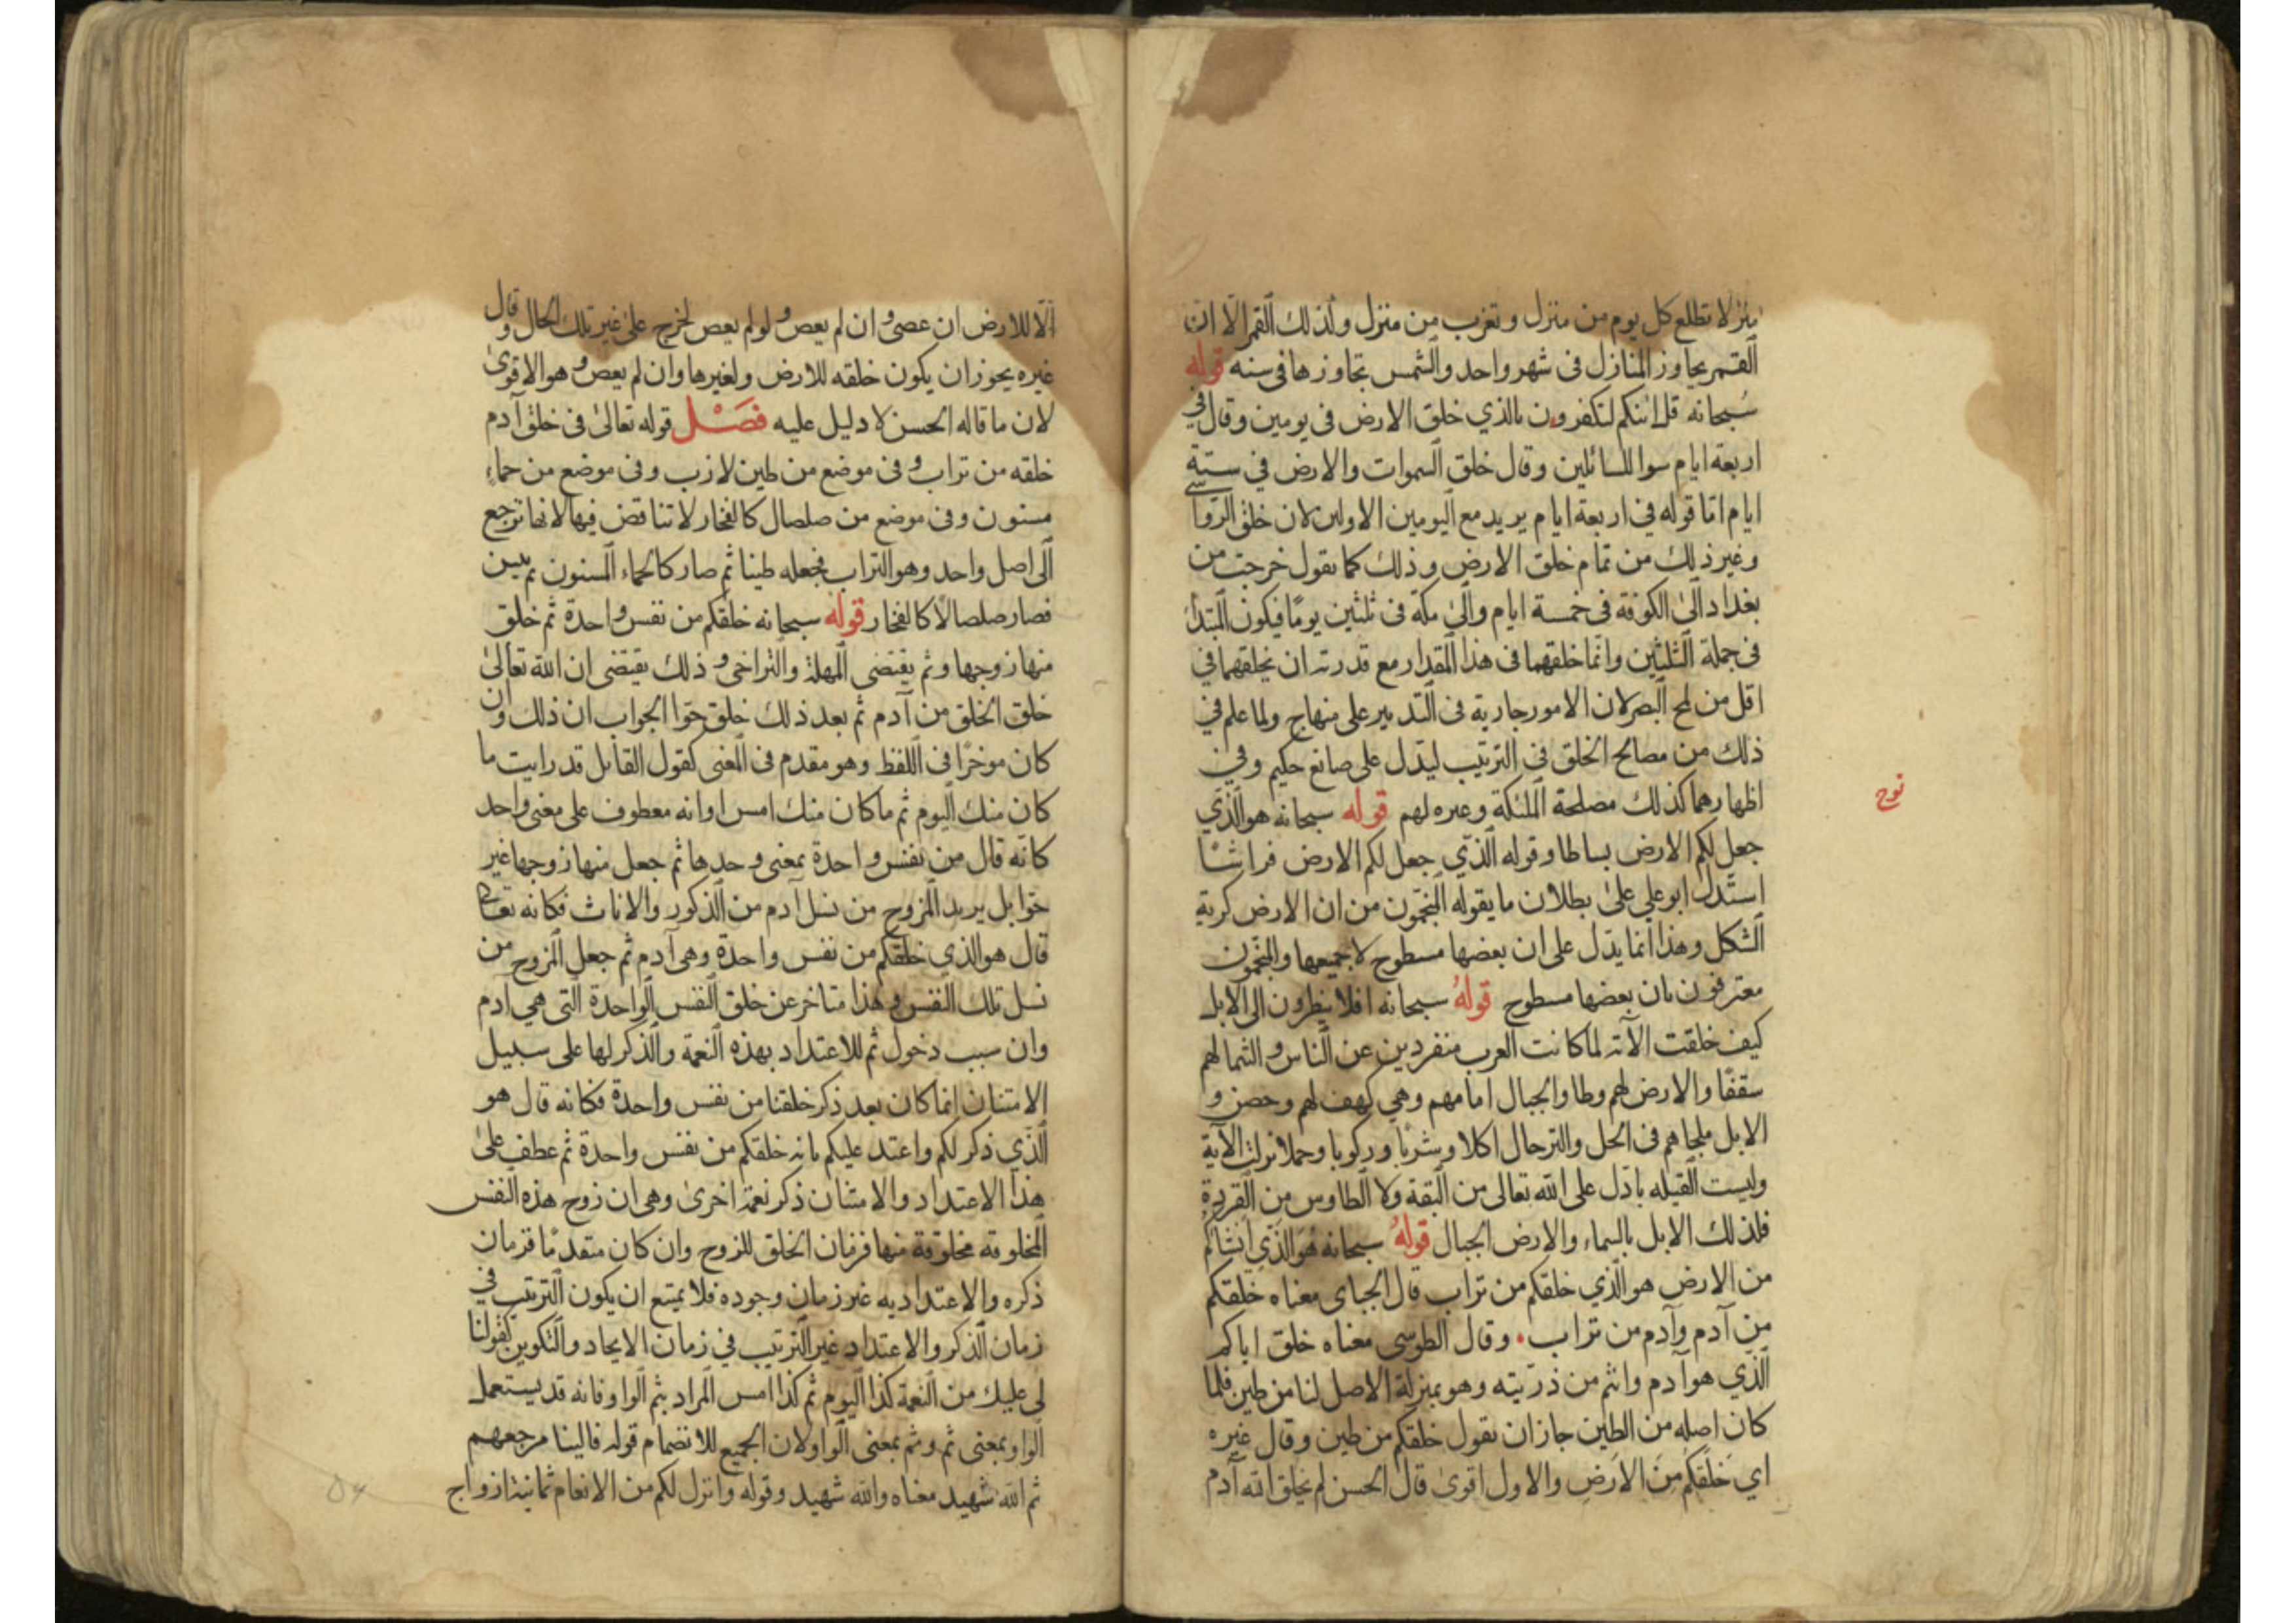 منزلا تطلع كل يوم من منزل و تغرب من منزل وكذلك القمر الا ان
القمر يجاوز المنازل في شهر واحد والشمس تجاوزها في سنه قوله
سبحانه قل ائنكم لتكفرون بالذي خلق الارض في يومين وقال في
اربعة ايام سوا للسائلين وقال خلق السموات والارض في ستة
ايام امّا قوله في اربعة ايام يريد مع اليومين الاولين لان خلق الرواسي
وغير ذلك من تمام خلق الارض وذلك كما تقول خرجت من
بغداد الى الكوفة في خمسة ايام والى مكة في ثلثين يومًا فيكون المبتدأ
في جملة الثلثين وانّما خلقهما في هذا المقدار مع قدرته ان يخلقهما في
اقل من لمح البصر لان الامور جارية في التدبير على منهاج ولما علم في
ذلك من مصالح الخلق في الترتيب ليدل على صانع حكيم وفي
اظهارهما كذلك مصلحة الملئكة وعبره لهم قوله سبحانه هو الّذي
نوح
جعل لكم الارض بساطا وقوله الّذي جعل لكم الارض فراشًا
استدل ابو علي على بطلان ما يقوله المنجّمون من ان الارض كرية
الشكل وهذا انما يدّل على ان بعضها مسطوح لا جميعها والمنجّمون
معترفون بان بعضها مسطوح قوله سبحانه افلا ينظرون الى الابل
كيف خلقت الآية لما كانت العرب منفردين عن الناس والسّما لهم
سقفًا والارض لهم وطا والجبال امامهم وهي كهف لهم وحصن و
الابل ملجاهم في الحل والترحال اكلا وشربًا وركوبا وحملا نزلت الآية
وليست الفيله بادّل على الله تعالى من البقة ولا الطاوس من القردة
فلذلك الابل بالسماء والارض الجبال قوله سبحانه هو الّذي انشاكم
من الارض هو الّذي خلقكم من تراب قال الجباى معناه خلقكم
من آدم وآدم من تراب • وقال الطوسي معناه خلق اباكم
الّذي هو آدم وانتم من ذرّيته وهو بمنزلة الاصل لنا من طين فلما
كان اصله من الطين جاز ان يقول خلقكم من طين وقال غيره
اي خلقكم من الارض والاول اقوى قال الحسن لم يخلق الله آدم
الّا للارض ان عصى و ان لم يعص و لو لم يعص لخرج على غير تلك الحال وقال
غيره يجوز ان يكون خلقه للارض ولغيرها وان لم يعص و هو الاقوى
لان ما قاله الحسن لا دليل عليه فصل قوله تعالى في خلق آدم
خلقه من تراب و في موضع من طين لازب وفي موضع من حماء
مسنون وفي موضع من صلصال كالفخار لا تناقض فيها لانها ترجع
الى اصل واحد وهو التراب فجعله طينا ثم صار كالحماء المسنون ثم يبس
فصار صلصالًا كالفخار قوله سبحانه خلقكم من نفس واحدة ثم خلق
منها زوجها وثم يقتضي المهلة والتراخى و ذلك يقتضى ان الله تعالى
خلق الخلق من آدم ثم بعد ذلك خلق حوّا الجواب ان ذلك وان
كان موخرًا في اللفظ وهو مقدم في المعنى كقول القايل قد رايت ما
كان منك اليوم ثم ما كان منك امس او انه معطوف على معنى واحد
كانّه قال من نفس واحدة بمعنى وحدها ثم جعل منها زوجها غير
حوّا بل يريد المزوج من نسل آدم من الذكور والاناث فكانه تعالى
قال هو الذي خلقكم من نفس واحدة وهي آدم ثم جعل المزوج من
نسل تلك النفس و هذا متاخر عن خلق النفس الواحدة التي هي آدم
وان سبب دخول ثم للاعتداد بهذه النعمة والذّكر لها على سبيل
الامتنان انما كان بعد ذكر خلقنا من نفس واحدة فكانه قال هو
الّذي ذكر لكم واعتد عليكم بانه خلقكم من نفس واحدة ثم عطف على
هذا الاعتداد والامتنان ذكر نعمة اخرى وهي ان زوج هذه النفس
المخلوقه مخلوقة منها فزمان الخلق للزوج وان كان متقدمًا فزمان
ذكره والاعتداد به غير زمان وجوده فلا يمتنع ان يكون الترتيب في
زمان الذكر والاعتداد غير الترتيب في زمان الايجاد والتكوين كقولنا
لى عليك من النعمة كذا اليوم ثم كذا امس المراد بثم الواو فانه قد يستعمل
الواو بمعنى ثم وثم بمعنى الواو لان الجميع للانضمام قوله فالينا مرجعهم
ثم الله شهيد معناه والله شهيد وقوله وانزل لكم من الانعام ثمانية ازواج